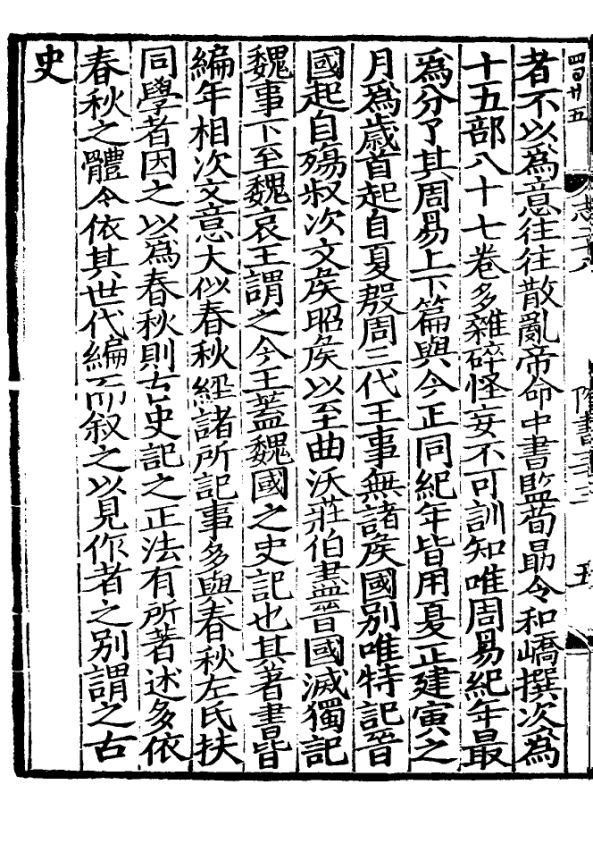 四百廿五 志二八 隋書三十三 五
者不以為意往往散亂帝命中書監荀勗令和嶠撰次為
十五部八十七卷多雜碎怪妄不可訓知唯周易紀年最
爲分了其周易上下篇與今正同紀年皆用夏正建寅之
月爲歲首起自夏殷周三代王事無諸侯國別唯特記晉
國起自殤叔次文侯昭侯以至曲沃莊伯盡晉國滅獨記
魏事下至魏哀王謂之今王蓋魏國之史記也其著書皆
編年相次文意大似春秋經諸所記事多與春秋左氏扶
同學者因之以爲春秋則古史記之正法有所著述多依
春秋之體今依其世代編而敘之以見作者之別謂之古
史